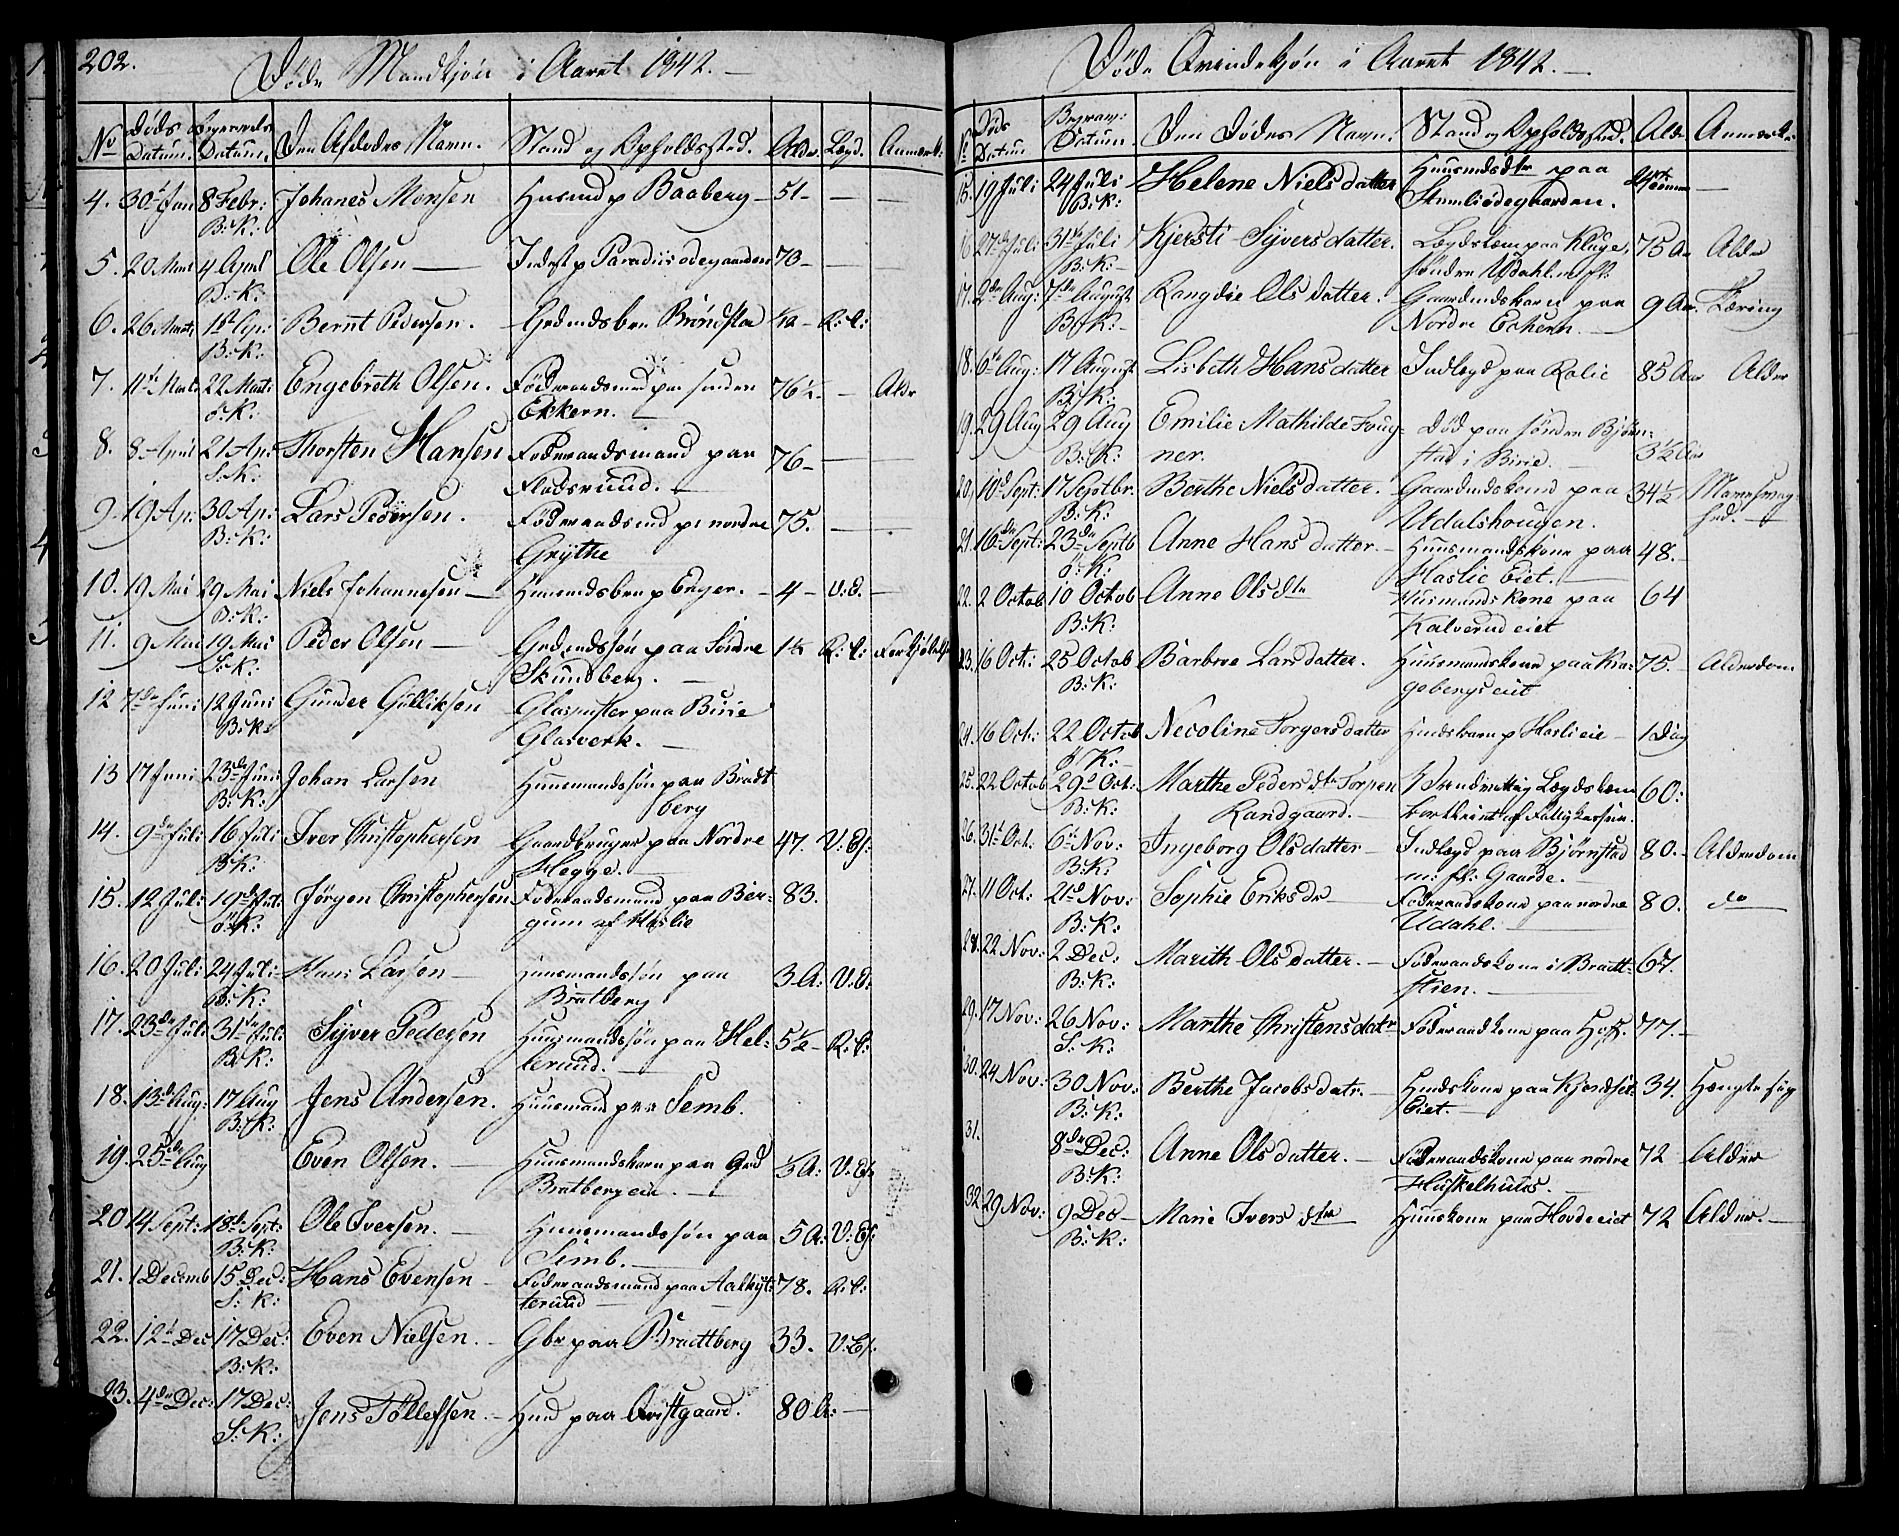 202.
Døde Mandkjøn i Aaret 1842.
No Døds Datum. Begravelse Datum. Den Afdødes Navn. Stand og Opholdssted. Alder. Lægd. Anmærk:
4. 30te Jan 8 Febr: B:K: Johanes Monsen Husmd p Baaberg 51
5. 20 Mart 4 April B:K: Ole Olsen Inderst p Paradiis ødegaarden 70
6. 26 Marts 1st Ap: B:K: Bernt Pedersen. Grdmdsbrn Brøndstad R: E:
7. 11te Marts 22 Marts S.K: Engebreth Olsen. Føderaadsmd paa søndre Ekkern. 76½ Alder
8. 8 April 21 Ap: S.K: Thorsten Hansen Foderaadsmand paa Fladsruud. 76
9. 19 Ap: 30 Ap: B:K: Lars Pedersen. Føderaadsmd pa nordre Grythe 75.
10. 19 Mai 29 Mai B:K: Niels Johannesen Huusmdsbrn p Enger. 4 V.E.
11. 9 Mai 19 Mai S:K: Peder Olsen Grdmdssøn paa Søndre Skundberg. R: E:
12 7de Juni 12 Juni B:K: Gunder Gulliksen Glaspuster paa Birie Glasverk.
13 17 Juni 23de Juni B:K: Johan Larsen Huusmandssøn paa Bradtberg
14. 9de Juli 16 Juli B:K: Iver Christophersen Gaardbruger paa Nordre Hegge. 47. V: Ef:
15. 12 Jul: 19de Jul: S:K: Jørgen Christophersen Foderaadsmand paa Bergum af Haslie 83.
16. 20 Jul: 24 Juli B:K: Hans Larsen Huusmandssøn paa Bratberg 3 A: V: E:
17. 23de Jul: 31te Jul: B:K: Syver Pedersen Huusmandssøn paa Hellerud. 5½ R: E:
18. 13d Aug: 17 Aug B:K: Jens Andersen. Huusmand paa Semb.
19. 25de Aug Even Olsen. Huusmandsbarn paa Grd Bratbergeie. A: V: Ef
20 14. Sept: 18de Sept: B:K: Ole Iversen. Huusmandssøn paa Semb. 5 A: V: Ef:
21. 1 Decemb 15 Dec: S: K: Hans Evensen Føderaadsmand paa 78. R: E:
22. 12te Dec 17 Dec: B:K: Even Nielsen. Gbr paa Braattberg 33. V: Ef:
23. 4de Dec: 17 Dec: S: K: Jens Tollefsen. Hmd paa Qvistgaard. 80 A:
Døde Qvindekjøn i Aaret 1842.
No Døds Datum Begrav: Datum. Den Dødes Navn. Stand og Opholdssted. Alder Anmærk:
15. 19 Juli 24 Juli B:K: Helene Nielsdatter Huusmdsdtr paa
16 27de Juli 31te Juli B:K: Kjersti Syversdatter. Lægdslem paa Kluge, søndre Udahl m. fl. 75 Aar Alder
17. 2den Aug: 7de August B:K: Rangdie Olsdatter. Gaardmdsbarn paa Nordre Eckern. 9 Aar.
18. 6te Aug: 17 August B:K: Lisbeth Hansdatter Indlægd paa Rolie 85 Aar Alder
19. 29 Aug 29 Aug B:K: Emilie Mathilde Fougner. Død paa søndre Bjørnstad i Birie. 3½ Aar
20. 10de Sept: 17 Septbr. B:K: Berthe Nielsdatter. Gaardmdskone paa Udalshougen. 34½
21. 16de Sept: 23de Septb S:K: Anne Hansdatter. Huusmandskone paa Haslie Eiet. 48.
22. 2 Octob 10 Octob B:K: Anne Olsdtr Husmands Kone paa Kalverud eiet 64
23. 16 Oct: 25 Octob B:K: Barbro Larsdatter. Huusmandskone paa Kragebergseiet 75. Alderdom
24. 16 Oct: 22 Octob S:K: Necoline Torgersdatter Huusbarn p Haslieeie 1 Dag
25. 22 Octob 29d Oct: B:K: Marthe Pedersdtr Torpen Randgaard. Lægdslem bortleiet af Fattigkassen. 60:
26. 31te Oct: 6te Nov: B:K: Ingeborg Olsdatter Indlægd paa Bjørnstad m: fl: Gaarde. 80. Alderdom
27. 11 Oct: 21d Nov: B:K: Sophie Eriksdr Foderaadskone paa nordre Udahl. 80. do
28. 22 Nov: 2 Dec: B:K: Marith Olsdatter. Føderaadskone i Braattstien. 67.
29. 17 Nov: 26 Nov: S: K: Marthe Christensdatr Føderaadkone paa Hoff. 77.
30. 24 Nov: 30 Nov: B:K: Berthe Jacobsdatr. Hmdskone paa Eiet. 34. Hængte sig
31. 8de Dec: B:K: Anne Olsdatter. Føderaadskone paa nordre Huskelhuus. 72 Alder
32 29 Nov: 9 Dec B:K: Marie Iversdtr Huuskone paa Hovdeeiet 72 Alder.